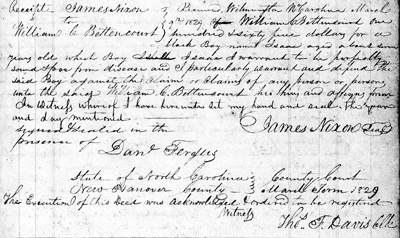 Receipt James Nixon } Received, Wilmington N Carolina March
to } 9th 1829 of William C Bettencourt One
William C Bettencourt } hundred sixty five dollars for a
black Boy named Isaac aged about seven
years old which Boy Isaac I warrant to be perfectly
sound & free from disease and I particularly warrant and defend the
said Boy against the Claim or Claims of any person or persons
unto the said William C Bettencourt his heirs and assigns forever
In Witness whereof I have hereunto set my hand and seal the year
and day mentioned
James Nixon Seal
Signed Sealed in the
presence of
Danl Fergus
State of North Carolina } County Court
New Hanover County } March Term 1829
The Execution of this Deed was acknowledged & ordered to be registered
Witness
Thos. F. Davis Clk